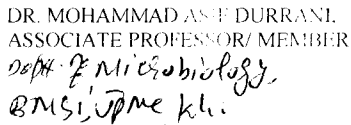 DR. MOHAMMAD ASIF DURRANI.
ASSOCIATE PROFESSOR/ MEMBER
Deptt. of Microbiology,
BMSI, JPMC Khi.